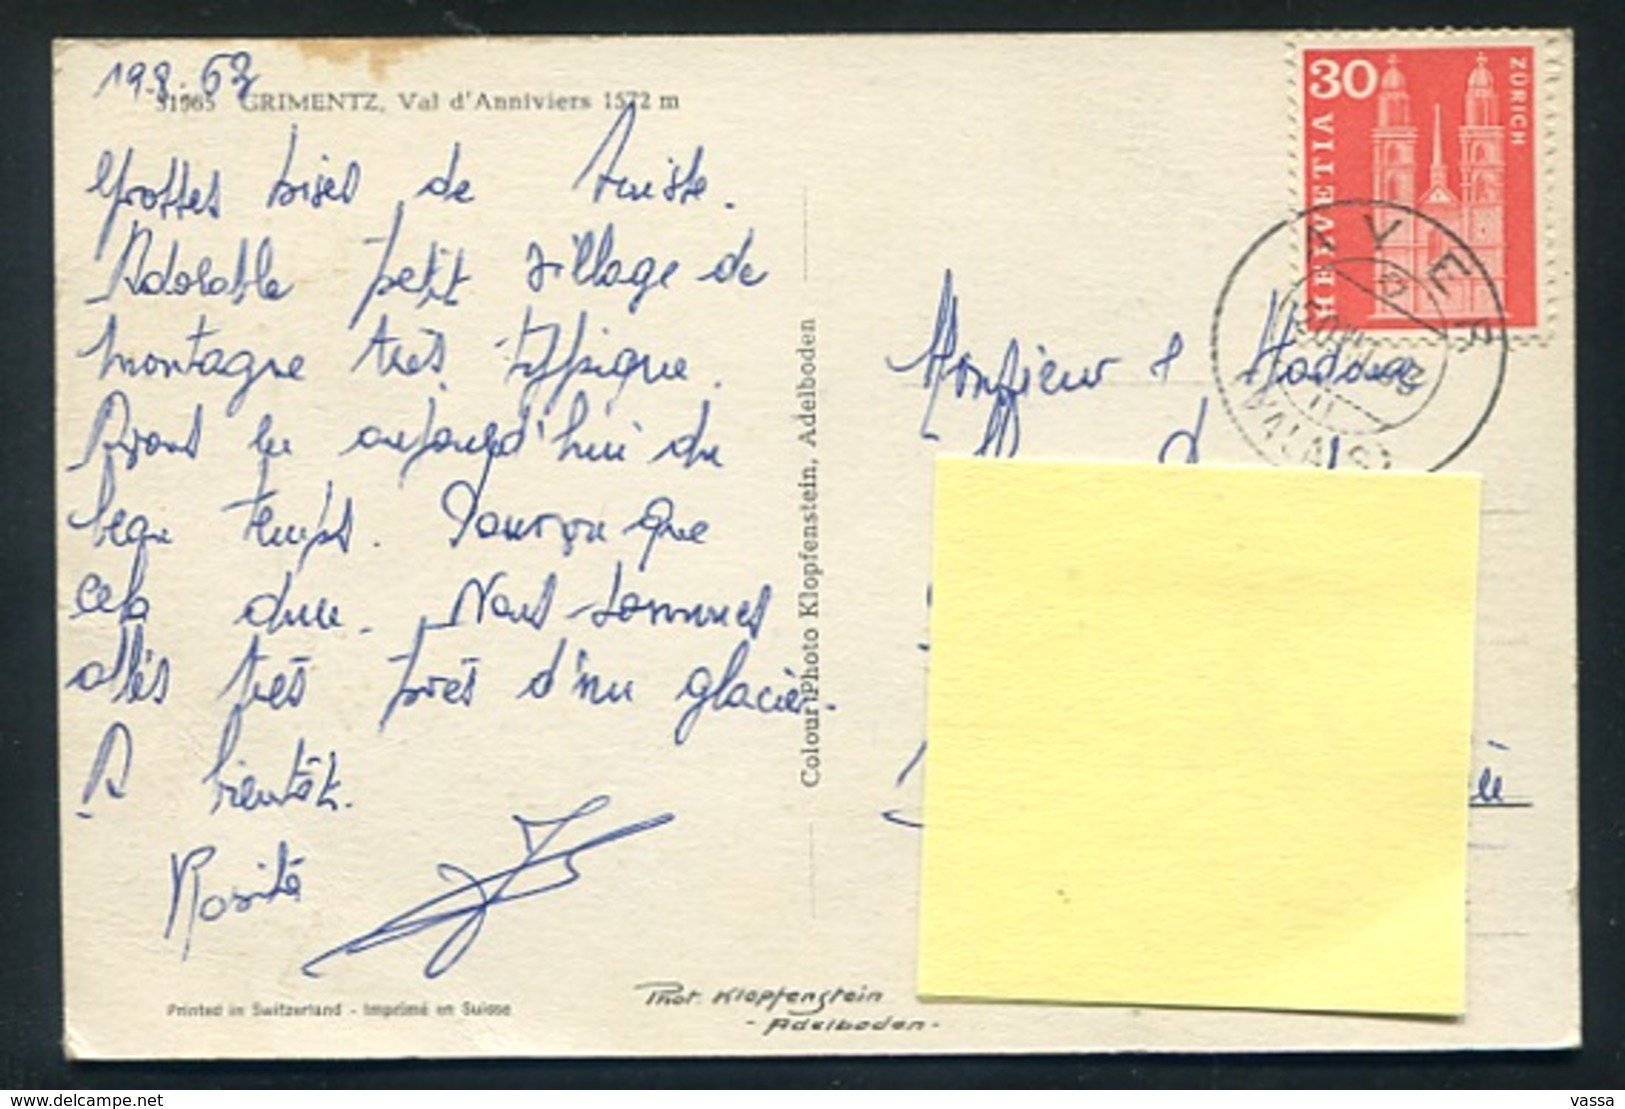 19.8.63
31965 GRIMENTZ, Val d'Anniviers 1572 m
Grosses bises de Suisse.
Adorable petit village de
montagne très typique.
Avons eu aujourd'hui du
beau temps. Pourvu que
cela dure. Nous sommes
allés très près d'un glacier.
A bientôt.
Rosita
Printed in Switzerland - Imprimé en Suisse
Phot. Klopfenstein
- Adelboden -
Colour Photo Klopfenstein, Adelboden
30
HELVETIA
ZÜRICH
VALAIS
Monsieur & Madame
delcampe.net
vassa